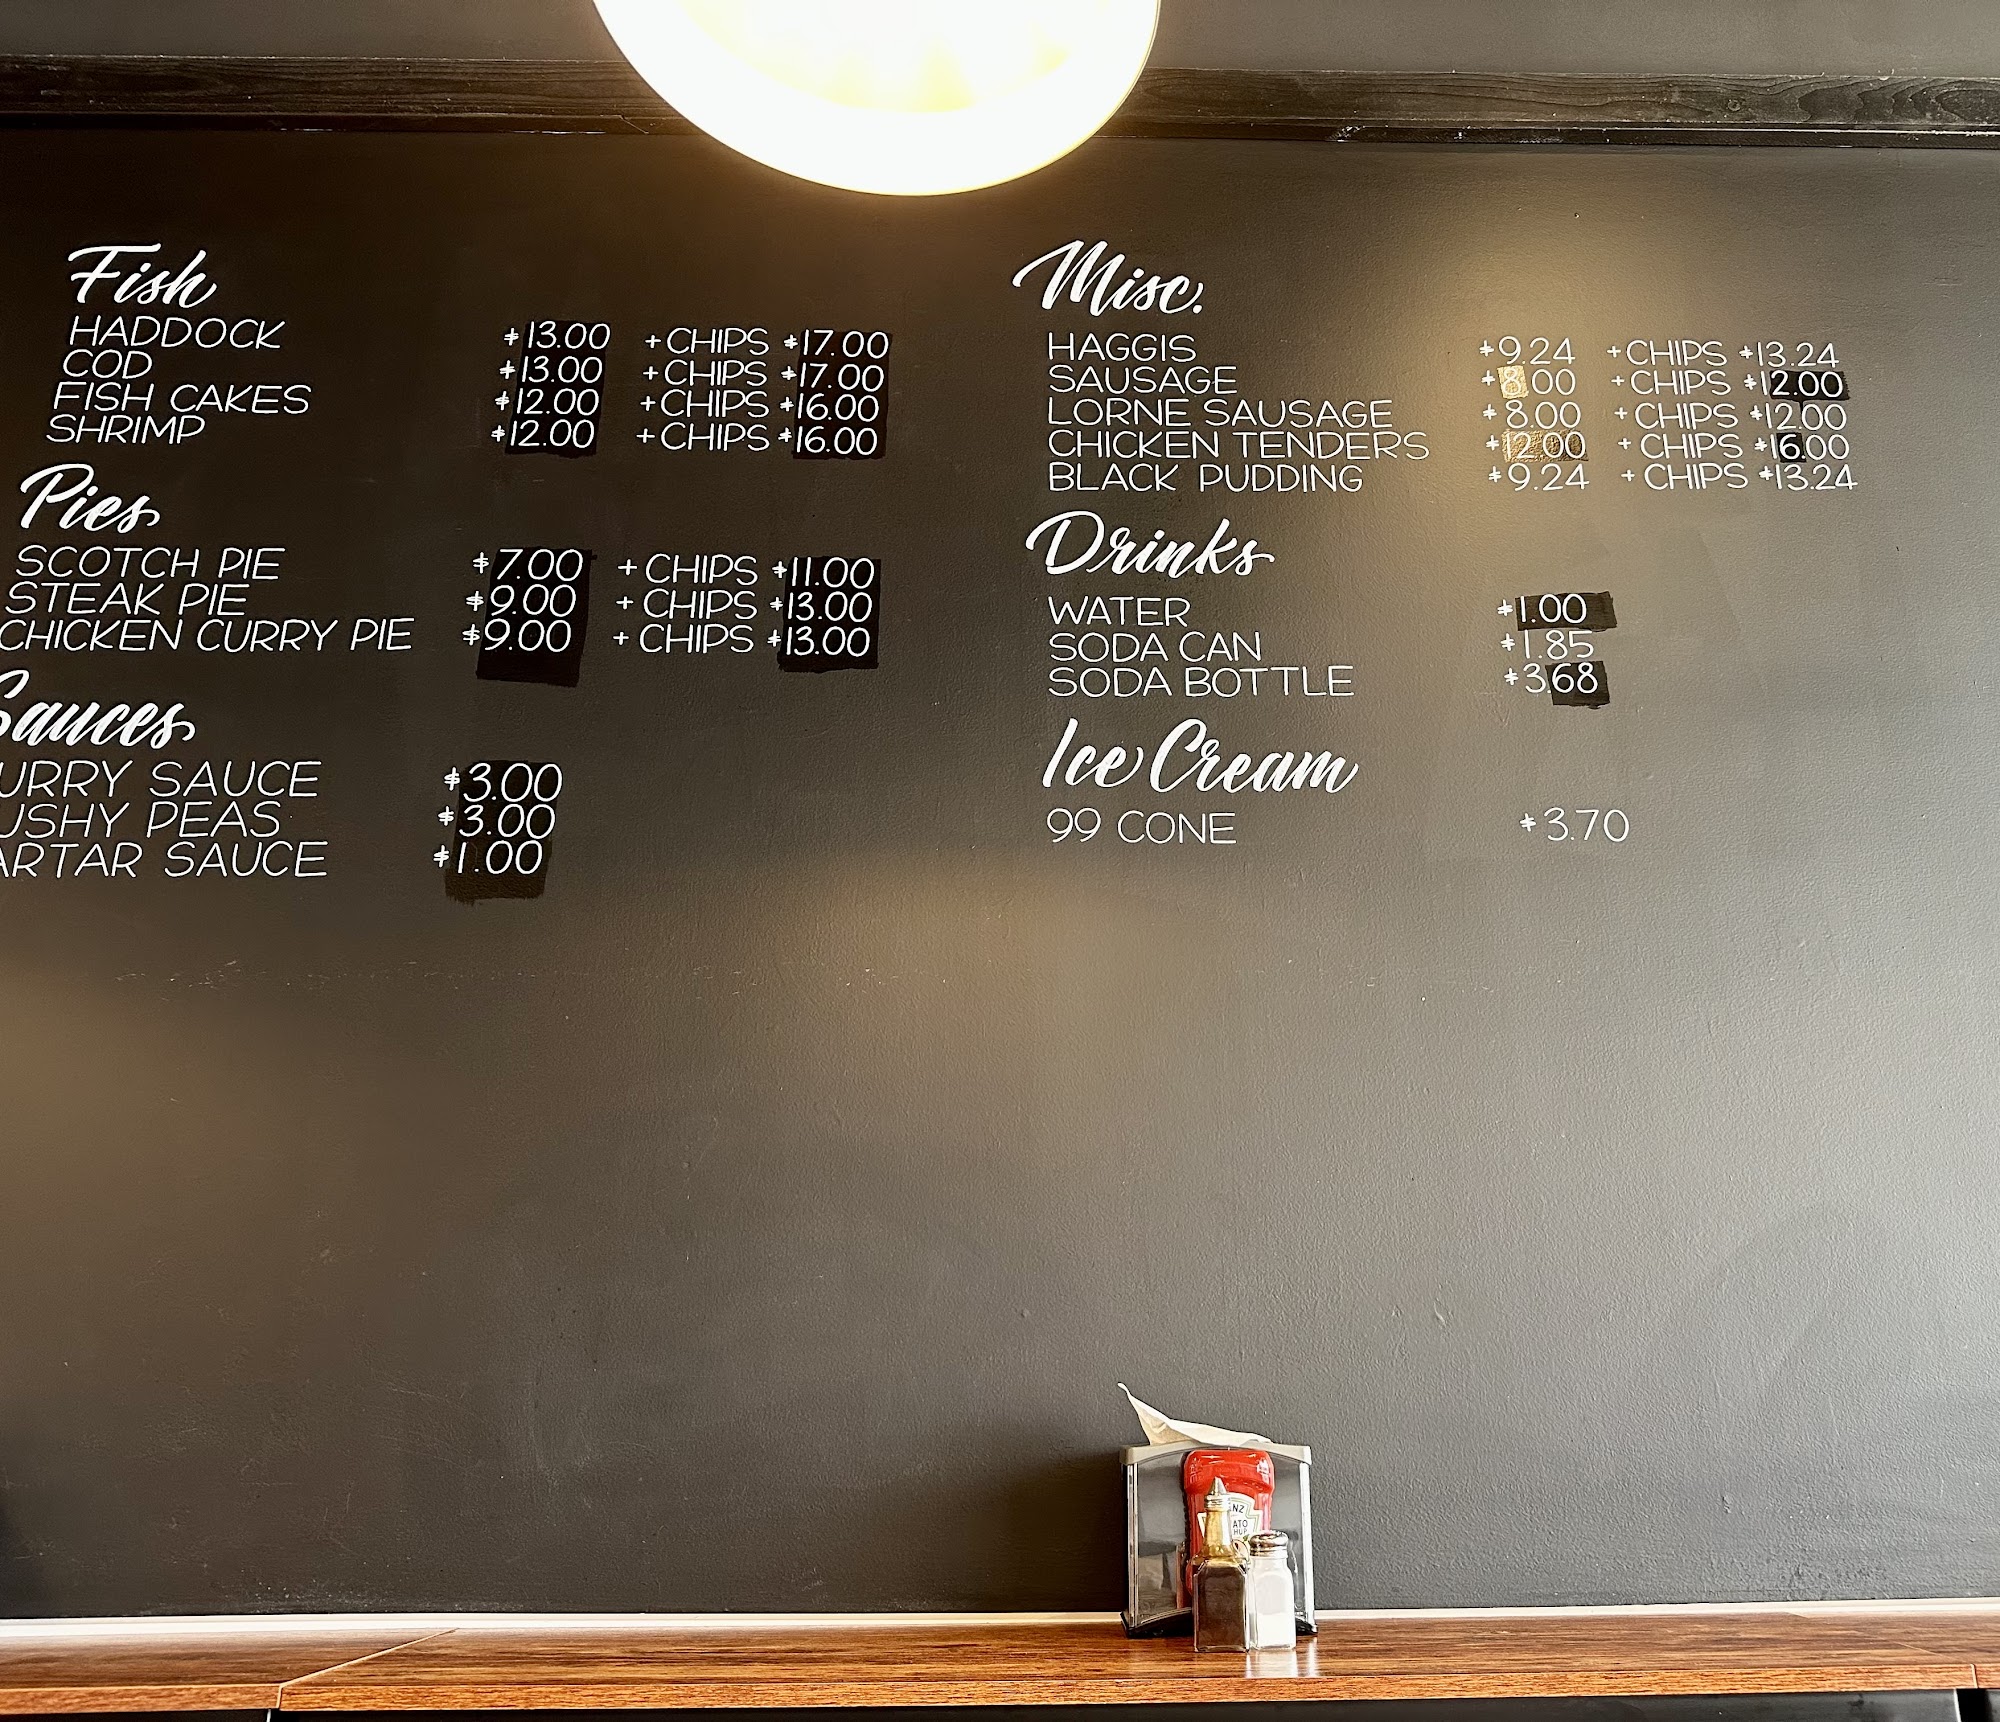 Fish
HADDOCK $13.00 + CHIPS $17.00
COD $13.00 + CHIPS $17.00
FISH CAKES $12.00 + CHIPS $16.00
SHRIMP $12.00 + CHIPS $16.00
Pies
SCOTCH PIE $7.00 + CHIPS $11.00
STEAK PIE $9.00 + CHIPS $13.00
CHICKEN CURRY PIE $9.00 + CHIPS $13.00
Sauces
URRY SAUCE $3.00
USHY PEAS $3.00
ARTAR SAUCE $1.00
Misc.
HAGGIS $9.24 + CHIPS $13.24
SAUSAGE $8.00 + CHIPS $12.00
LORNE SAUSAGE $8.00 + CHIPS $12.00
CHICKEN TENDERS $12.00 + CHIPS $16.00
BLACK PUDDING $9.24 + CHIPS $13.24
Drinks
WATER $1.00
SODA CAN $1.85
SODA BOTTLE $3.68
Ice Cream
99 CONE $3.70
NZ
ATO
HUP